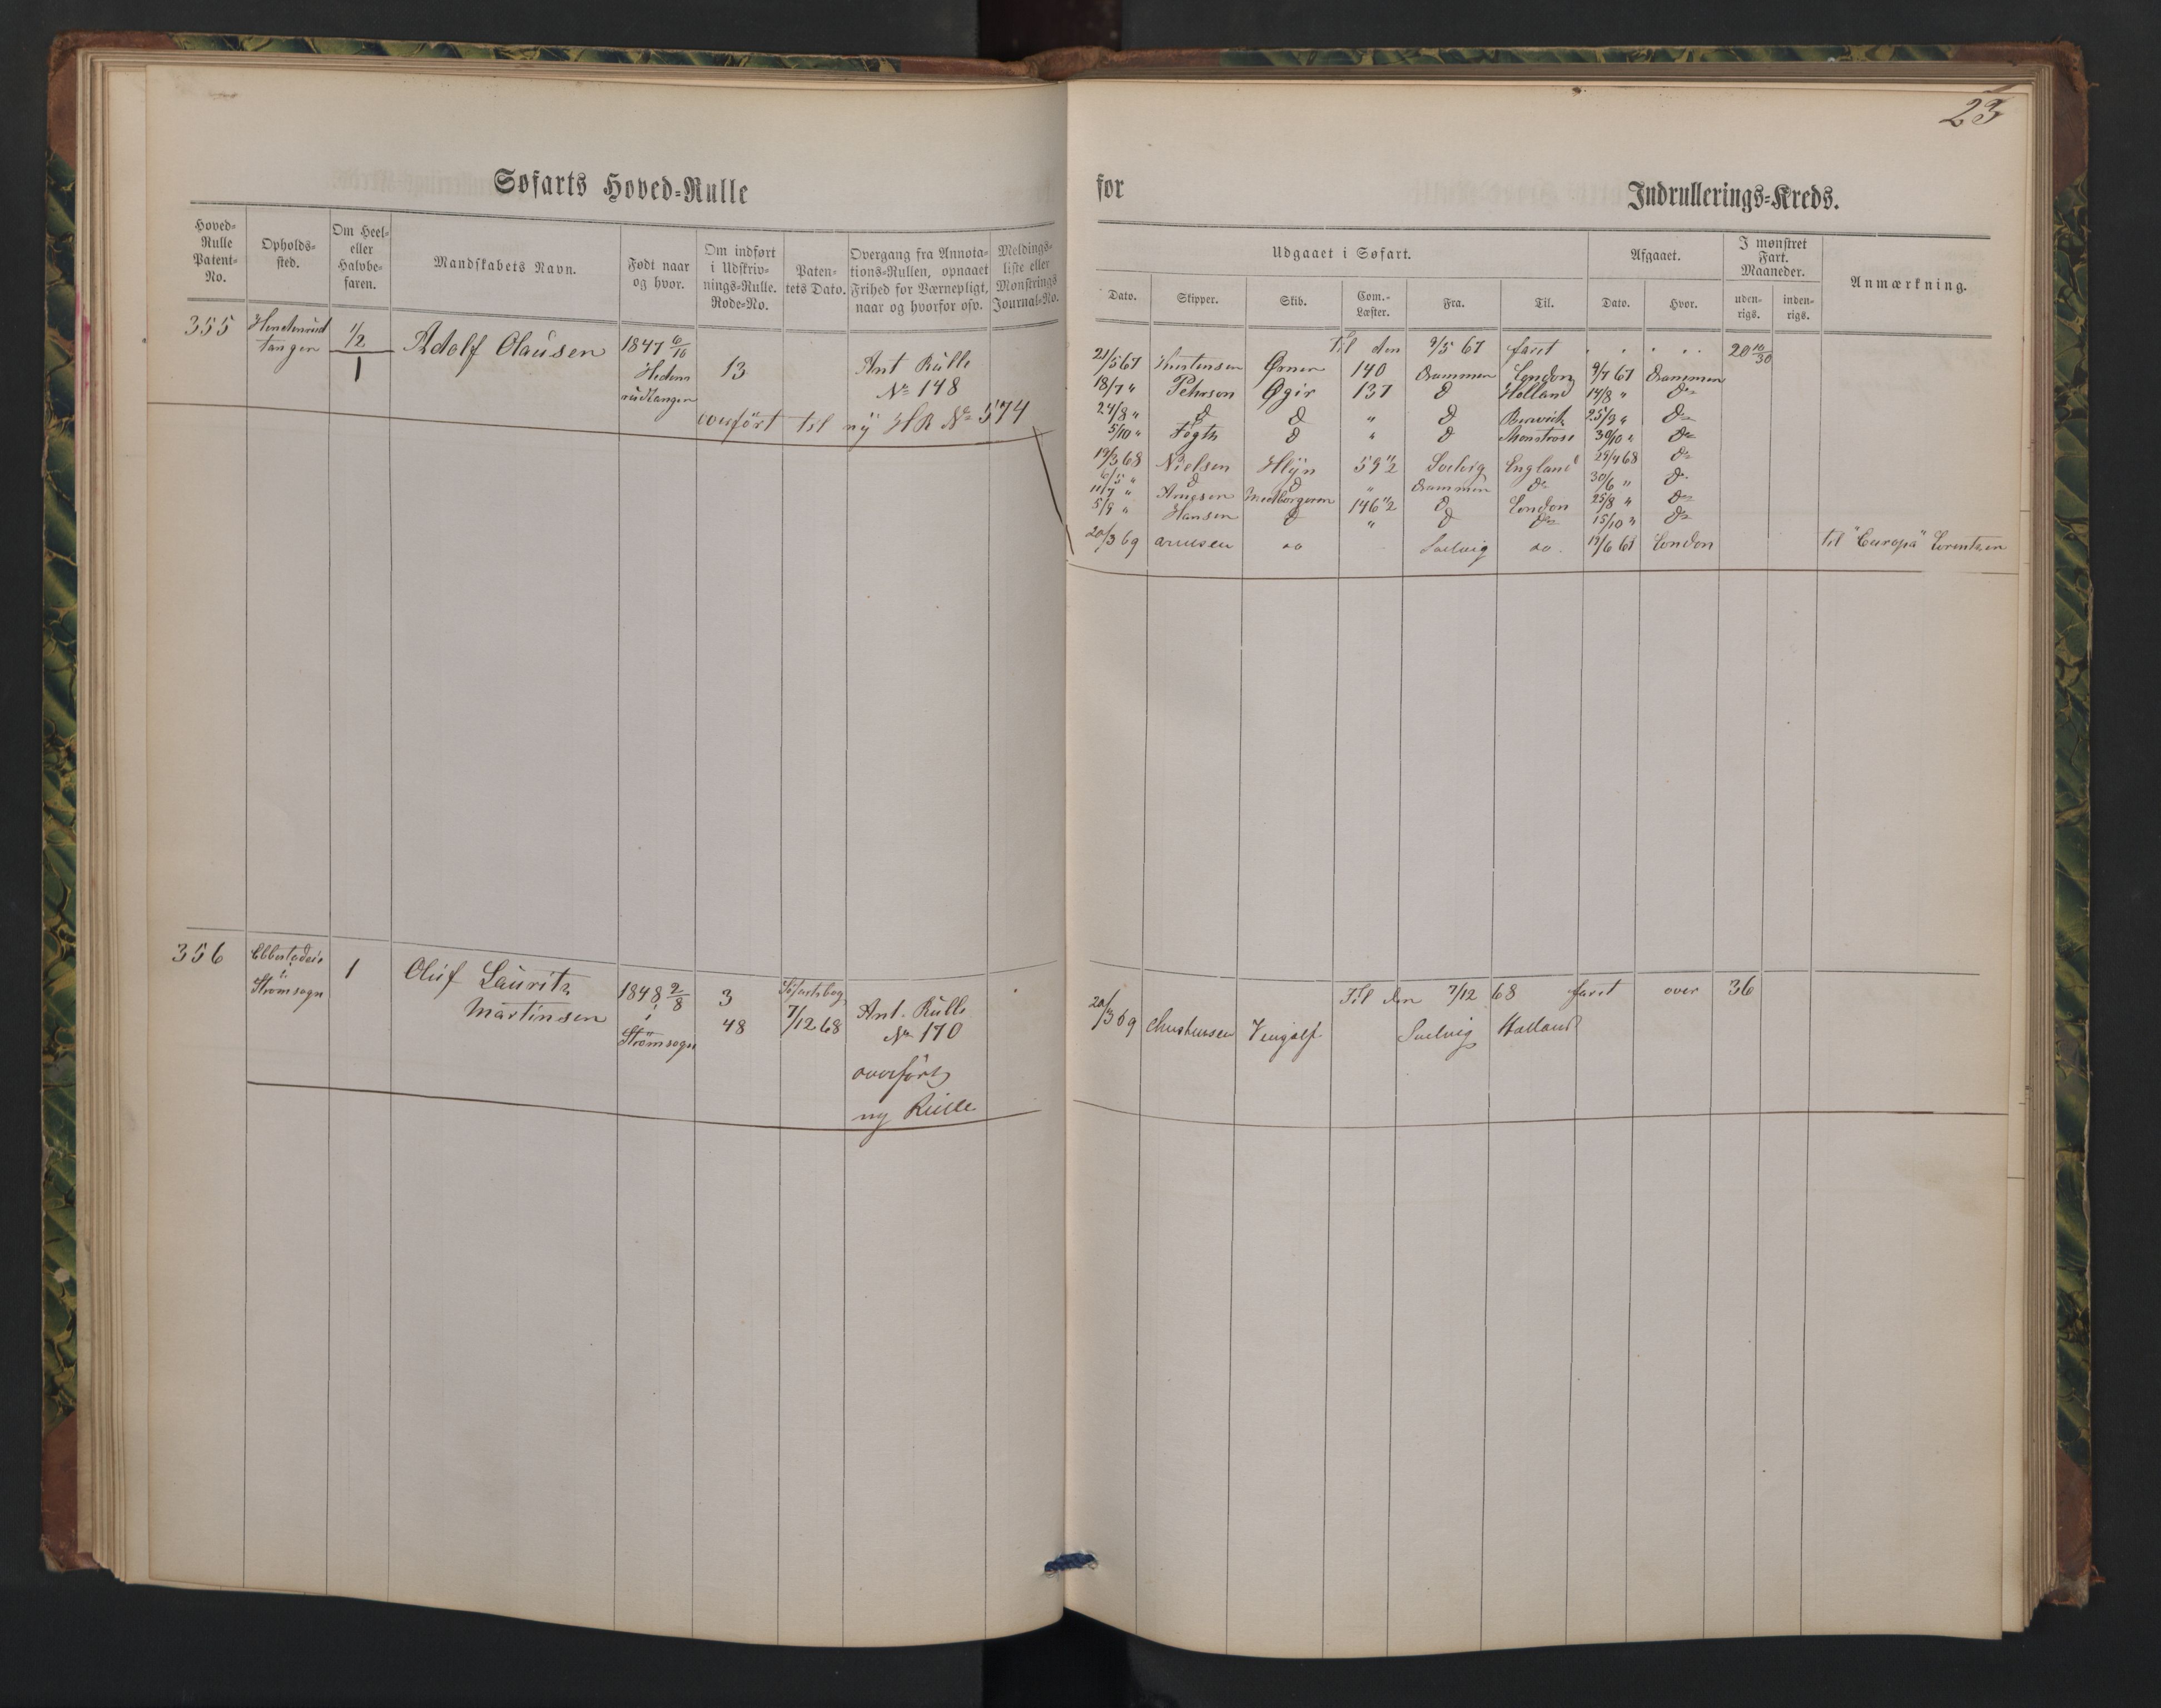 23
Søfarts Hoved-Rulle
for Indrullerings-Kreds.
Hoved-Rulle Patent-No.
Opholds-sted.
Om Heel- eller Halvbe-faren.
Mandskabets Navn.
Født naar og hvor.
Om indført i Udskriv-nings-Rulle. Rode-No.
Paten-tets Dato.
Overgang fra Annota-tions-Rullen, opnaaet Frihed for Værnepligt, naar og hvorfor osv.
Meldings-liste eller Mønstrings Journal-No.
Udgaaet i Søfart.
Afgaaet.
I mønstret Fart. Maaneder.
Anmærkning.
Dato. Skipper. Skib. Com.-Læster. Fra. Til. Dato. Hvor. uden-rigs. inden-rigs.
355
tangen
1/2
1
Adolf Olausen
1847 6/10
Hedens
rudtangen
13
Ant Rulle
No 148
overført til ny HR No 574
Til den 9/5 67 faret 20 10/30
21/5 67 Christensen Ørnen 140 Drammen London 9/7 67 Drammen
18/7 " Peterson Øgir 137 Do Holland 14/8 " Do
24/8 " Do Do " Do Berwick 25/9 " Do
5/10 " Fogth Do " Do Monstrose 30/10 " Do
19/3 68 Nielsen Hlyn 59 1/2 Svelvig England 29/4 68 Do
6/5 " Do Do " Drammen Do 30/6 " Do
11/7 " Arnesen Medborgeren 146 1/2 Do London 25/8 " Do
5/9 " Hansen Do " Do Do 15/10 " Do
20/3 69 Arnesen do Svelvig do. London til "Europa" Lorentzen
356
Ebbestadeie
i
Strømsogn
1
Oluf Lauritz
Martinsen
1848 2/8
i
Strømsogn
3
48
Søfartsbog
7/12 68
Ant. Rulle
No 170
overført
ny Rulle
Til den 7/12 68 faret over 36
20/3 69 Christensen Vingolf Svelvig Holland